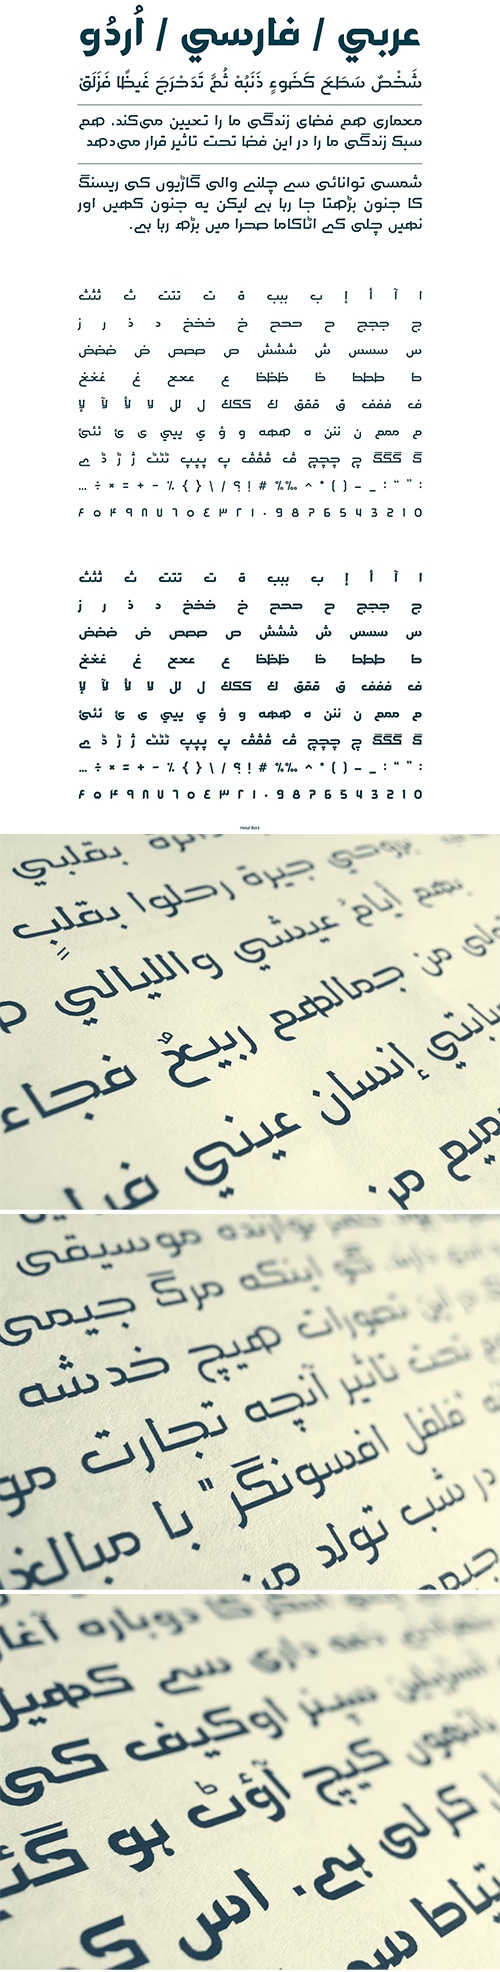 عربي / فارسي / اُردُو
شَخْصٌ سَطَعَ كَضَوءٍ ذَنَبُهُ ثُمَّ تَدَحْرَجَ غَيظًا فَزَلَقْ
معماری هم فضای زندگی ما را تعیین می‌کند، هم
سبک زندگی ما را در این فضا تحت تاثیر قرار می‌دهد
شمسی توانائی سے چلنے والی گاڑیوں کی ریسنگ
کا جنون بڑھتا جا رہا ہے لیکن یہ جنون کھیں اور
نھیں چلی کے اٹاکاما صحرا میں بڑھ رہا ہے.
ا آ أ إ ب ببب ة ت تتت ث ثثث
ج ججج ح ححح خ خخخ د ذ ر ز
س سسس ش ششش ص صصص ض ضضض
ط ططط ظ ظظظ ع ععع غ غغغ
ف ففف ق ققق ك ككك ل لل لا لأ لآ لإ
م ممم ن ننن ه ههه و ؤ ي ييي ى ئ ئئئ
گ گگگ چ چچچ ڤ ڤڤڤ پ پپپ ٹٹٹ ژ ڑ ڈ ے
: “ ” : _ – ( ) * ^ %‰ # ! ؟ / \ { } ٪ - + = × ÷ …
0 1 2 3 4 5 6 7 8 9 ٠ ١ ٢ ٣ ٤ ٥ ٦ ٧ ٨ ٩ ۴ ۵ ۶
ا آ أ إ ب ببب ة ت تتت ث ثثث
ج ججج ح ححح خ خخخ د ذ ر ز
س سسس ش ششش ص صصص ض ضضض
ط ططط ظ ظظظ ع ععع غ غغغ
ف ففف ق ققق ك ككك ل لل لا لأ لآ لإ
م ممم ن ننن ه ههه و ؤ ي ييي ى ئ ئئئ
گ گگگ چ چچچ ڤ ڤڤڤ پ پپپ ٹٹٹ ژ ڑ ڈ ے
: “ ” : _ – ( ) * ^ %‰ # ! ؟ / \ { } ٪ - + = × ÷ …
0 1 2 3 4 5 6 7 8 9 ٠ ١ ٢ ٣ ٤ ٥ ٦ ٧ ٨ ٩ ۴ ۵ ۶
بقلبي
جيرة رحلوا بقلبٍ
بهم أيامُ عيشي والليالي
من جمالهم ربيعٌ فجاء
إنسان عيني
من
موسیقی
گو اینکه مرگ جیمی
این تصورات هیچ خدشه
تحت تاثیر آنچه تجارت
فلفل افسونگر" با
در شب تولد من
دوبارہ
داری سے کھیل
سپنر اوکیف کی
کیچ آؤٹ ہو
کر لی ہے. اس